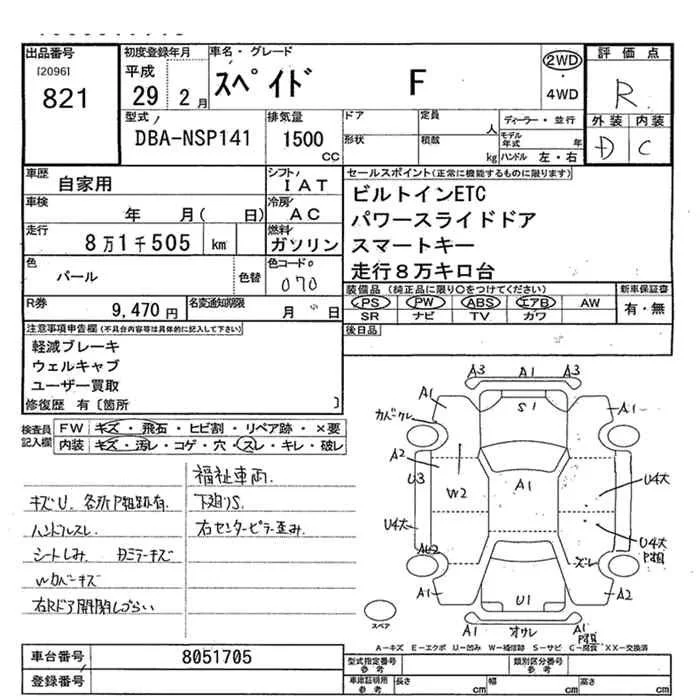 出品番号
[2096]
821
初度登録年月
平成
29 2月
車名・グレード
スペイド F
2WD
・
4WD
評価点
R
外装 内装
D C
型式
DBA-NSP141
排気量
1500
CC
ドア
形状
定員
人
積載
kg
ディーラー・並行
モデル年式 年
ハンドル 左・右
車歴
自家用
シフト
IAT
車検
年 月( 日)
冷房
AC
走行
8万1千505 km
燃料
ガソリン
色
パール
色替
色コードo
070
R券
9,470 円
名変通知期限
月 日
セールスポイント(正常に機能するものに限ります)
ビルトインETC
パワースライドドア
スマートキー
走行8万キロ台
装備品 (純正品に限り○をつけてください)
新車保証書
PS PW ABS エアB AW
SR ナビ TV カワ
有・無
後日品
注意事項申告欄 (不具合内容等は具体的に記入して下さい)
軽減ブレーキ
ウェルキャブ
ユーザー買取
修復歴 有〔箇所 〕
検査員
記入欄
FW キズ・飛石・ヒビ割・リペア跡・×要
内装 キズ・汚レ・コゲ・穴・スレ・キレ・破レ
福祉車両.
キズU. 各所P粗跡有.
下廻りS.
ハンドルスレ.
右センターピラー歪み.
シートしみ. 口ミラーキズ
Wカバーキズ
右Rドア開閉しづらい
A3 A1 A3
A1 S1 A1
カバークレ
A2
U3
W2
A1
U4大
U4大
U4大
P粗
A1
U1
A2
ズレ
スペア
A1 オクレ A1
P粗
A-キズ E-エクボ U-凹み W-補修跡 S-サビ C-腐食 X・XX-交換済
車台番号
8051705
登録番号
型式指定番号
参考
類別区分番号
参考
車庫証明用
参考
長さ cm 幅 cm 高さ cm